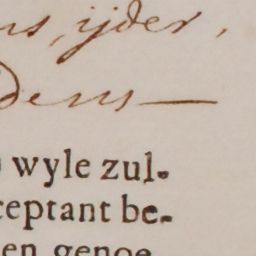 ns, ijder,
dens—
wyle zul-
ceptant be-
en genoe